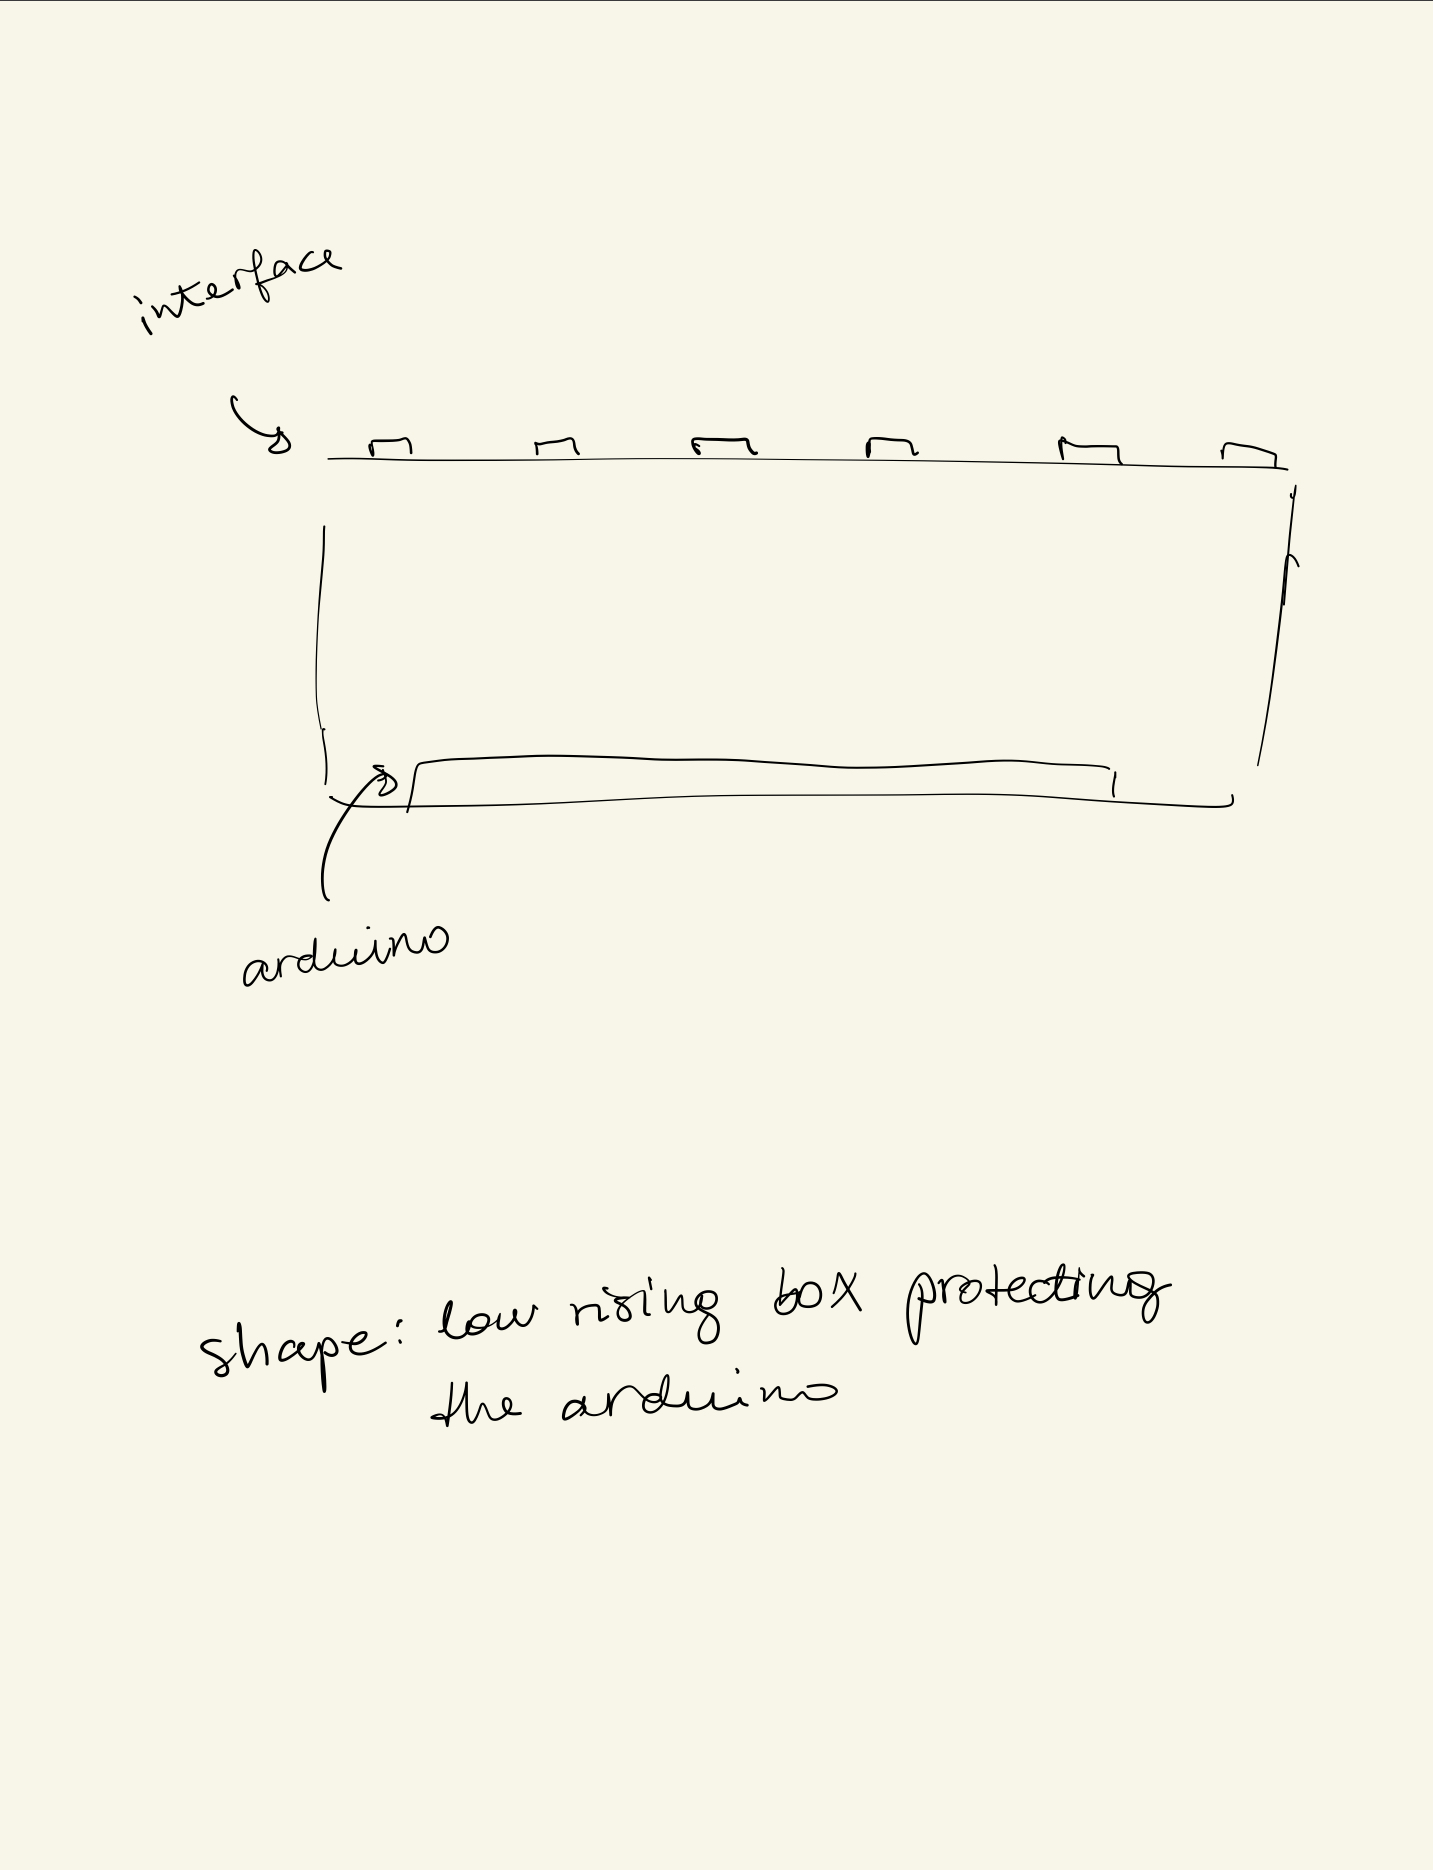 interface
arduino
shape: low rising box protecting
the arduino